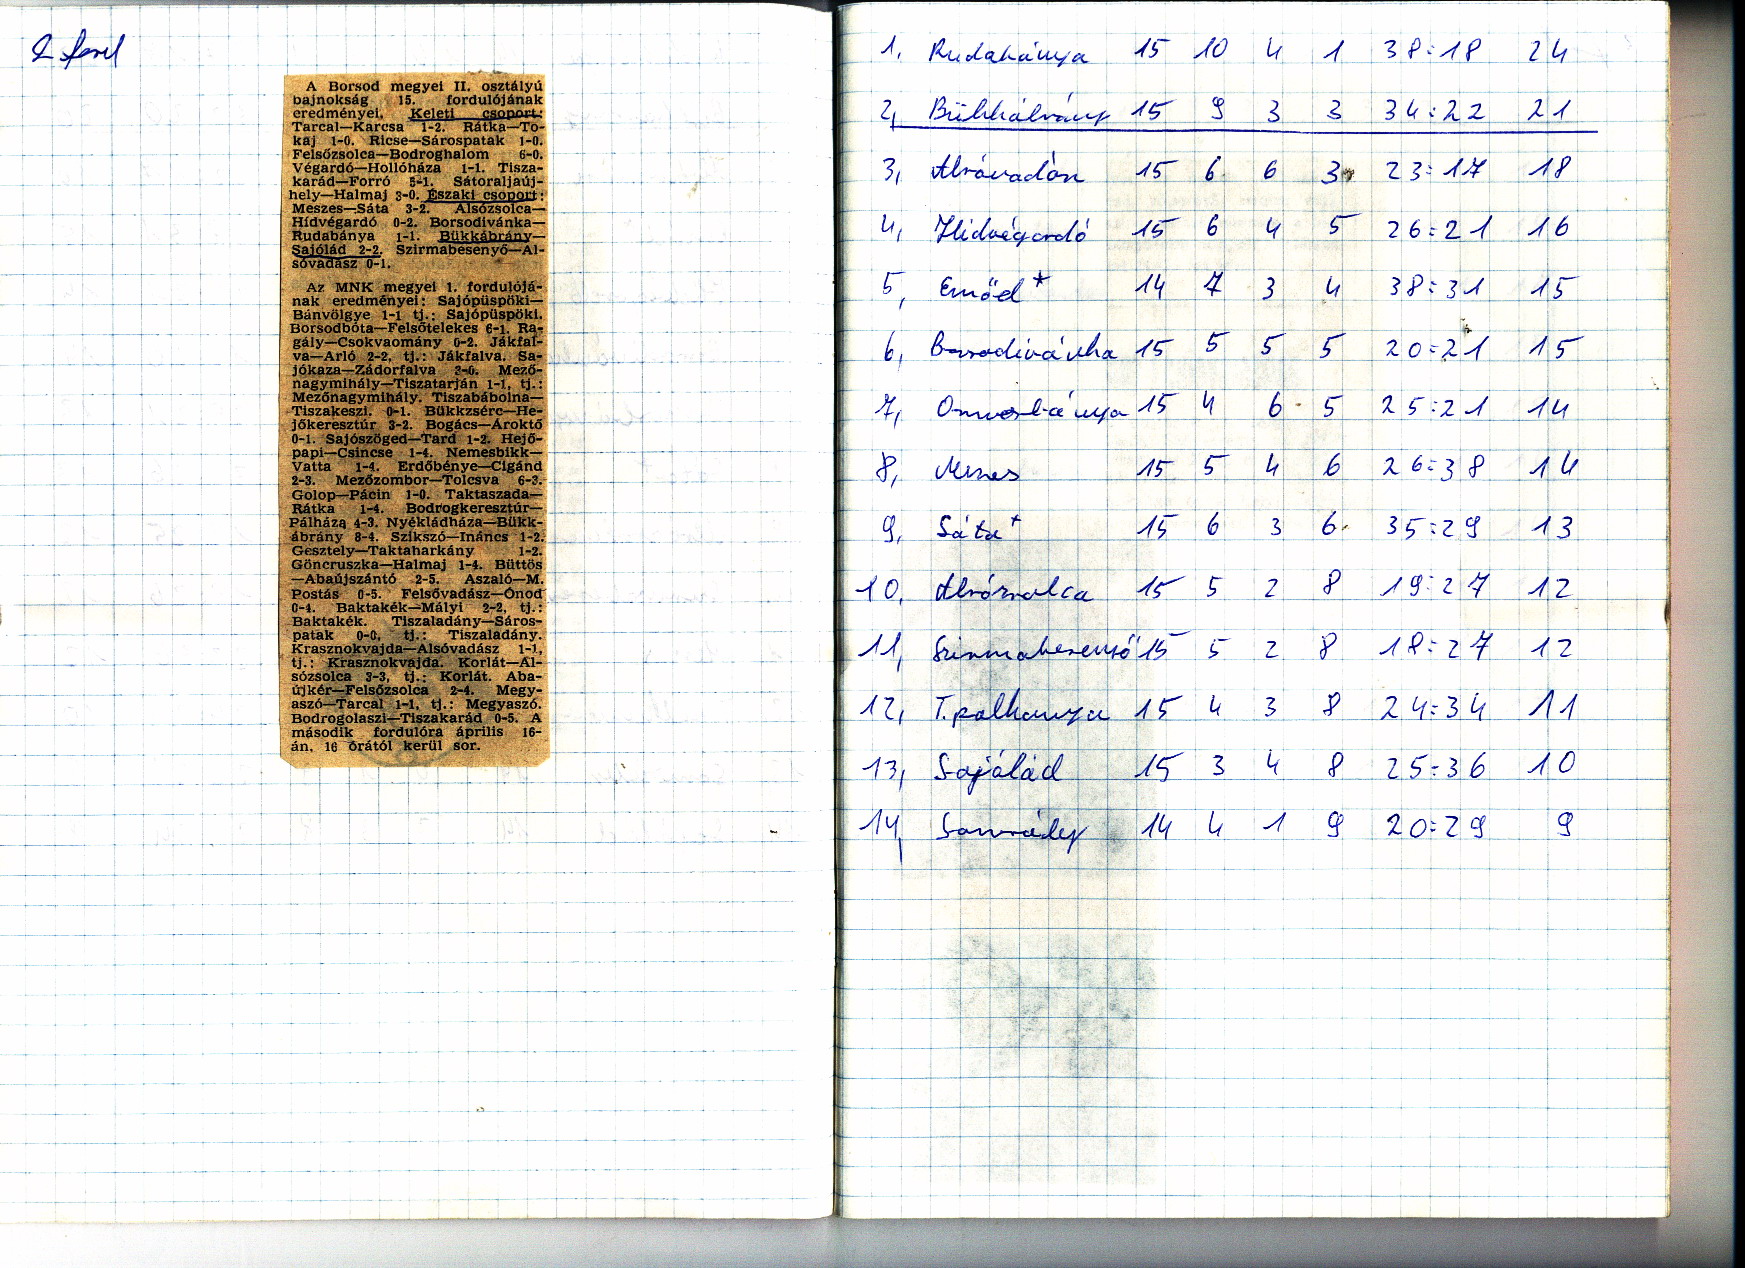 A Borsod megyei II. osztályú
bajnokság 15. fordulójának
eredményei. Keleti csoport:
Tarcal—Karcsa 1-2. Rátka—To-
kaj 1-0. Ricse—Sárospatak 1-0.
Felsőzsolca—Bodroghalom 6-0.
Végardó—Hollóháza 1-1. Tisza-
karád—Forró 5-1. Sátoraljaúj-
hely—Halmaj 3-0. Északi csoport:
Meszes—Sáta 3-2. Alsózsolca—
Hídvégardó 0-2. Borsodivánka—
Rudabánya 1-1. Bükkábrány—
Sajólád 2-2. Szirmabesenyő—Al-
sóvadász 0-1.
Az MNK megyei 1. fordulójá-
nak eredményei: Sajópüspöki—
Bánvölgye 1-1 tj.: Sajópüspöki.
Borsodbóta—Felsőtelekes 6-1. Ra-
gály—Csokvaomány 0-2. Jákfal-
va—Arló 2-2, tj.: Jákfalva. Sa-
jókaza—Zádorfalva 2-0. Mező-
nagymihály—Tiszatarján 1-1, tj.:
Mezőnagymihály. Tiszabábolna—
Tiszakeszi. 0-1. Bükkzsérc—He-
jőkeresztúr 3-2. Bogács—Ároktő
0-1. Sajószöged—Tard 1-2. Hejő-
papi—Csincse 1-4. Nemesbikk—
Vatta 1-4. Erdőbénye—Cigánd
2-3. Mezőzombor—Tolcsva 6-3.
Golop—Pácin 1-0. Taktaszada—
Rátka 1-4. Bodrogkeresztúr—
Pálháza 4-3. Nyékládháza—Bükk-
ábrány 8-4. Szikszó—Ináncs 1-2.
Gesztely—Taktaharkány 1-2.
Göncruszka—Halmaj 1-4. Büttös
—Abaújszántó 2-5. Aszaló—M.
Postás 0-5. Felsővadász—Ónod
0-4. Baktakék—Mályi 2-2, tj.:
Baktakék. Tiszaladány—Sáros-
patak 0-0, tj.: Tiszaladány.
Krasznokvajda—Alsóvadász 1-1,
tj.: Krasznokvajda. Korlát—Al-
sózsolca 3-3, tj.: Korlát. Aba-
újkér—Felsőzsolca 2-4. Megy-
aszó—Tarcal 1-1, tj.: Megyaszó.
Bodrogolaszi—Tiszakarád 0-5. A
második fordulóra április 16-
án, 16 órától kerül sor.
1, Rudabánya 15 10 4 1 38:18 24
2, Bükkábrány 15 9 3 3 34:22 21
3, Alsóvadász 15 6 6 3 23:17 18
4, Hidvégardó 15 6 4 5 26:21 16
5, Emőd* 14 7 3 4 38:31 15
6, Borsodivánka 15 5 5 5 20:21 15
7, Ormosbánya 15 4 6 5 25:21 14
8, Meszes 15 5 4 6 26:38 14
9, Sáta+ 15 6 3 6 35:29 13
10, Alsózsolca 15 5 2 8 19:27 12
11, Szirmabesenyő 15 5 2 8 18:27 12
12, T.palkonya 15 4 3 8 24:34 11
13, Sajólád 15 3 4 8 25:36 10
14, 14 4 1 9 20:29 9